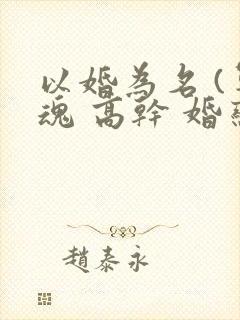 以婚為名(
魂 高幹 婚
趙泰永